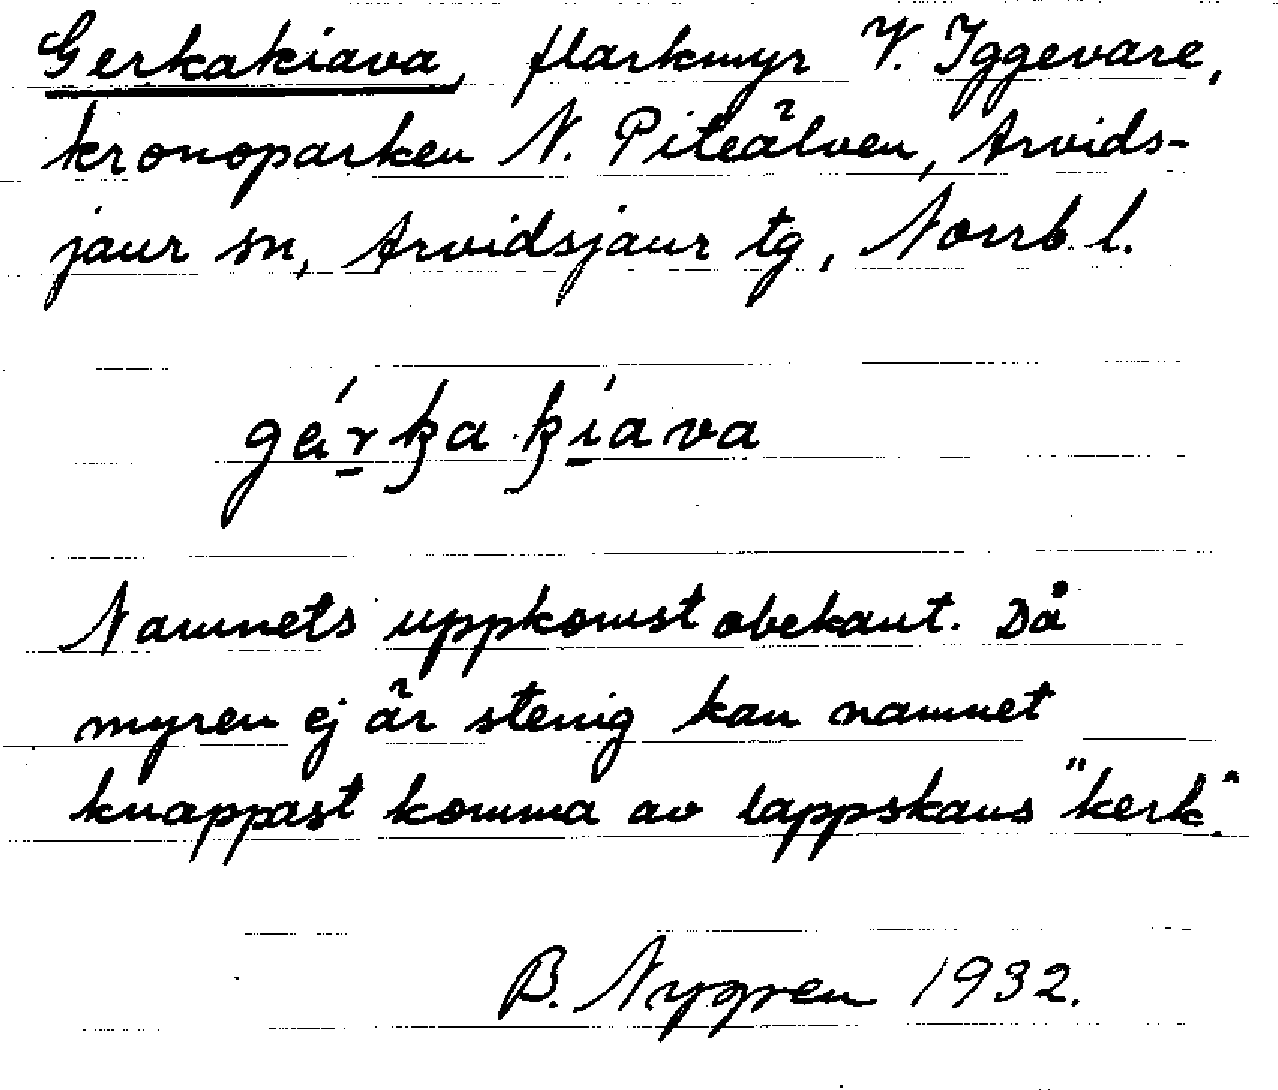 Gerkakiava, flarkmyr V. Iggevare,
kronoparken N. Piteälven, Arvids-
jaur sn, Arvidsjaur tg, Norrb. l.
gér̲ꜧa ꜧi̲ava
Namnets uppkomst obekant. Då
myren ej är stenig kan namnet
knappast komma av lappskans "kerk".
B. Nygren 1932.